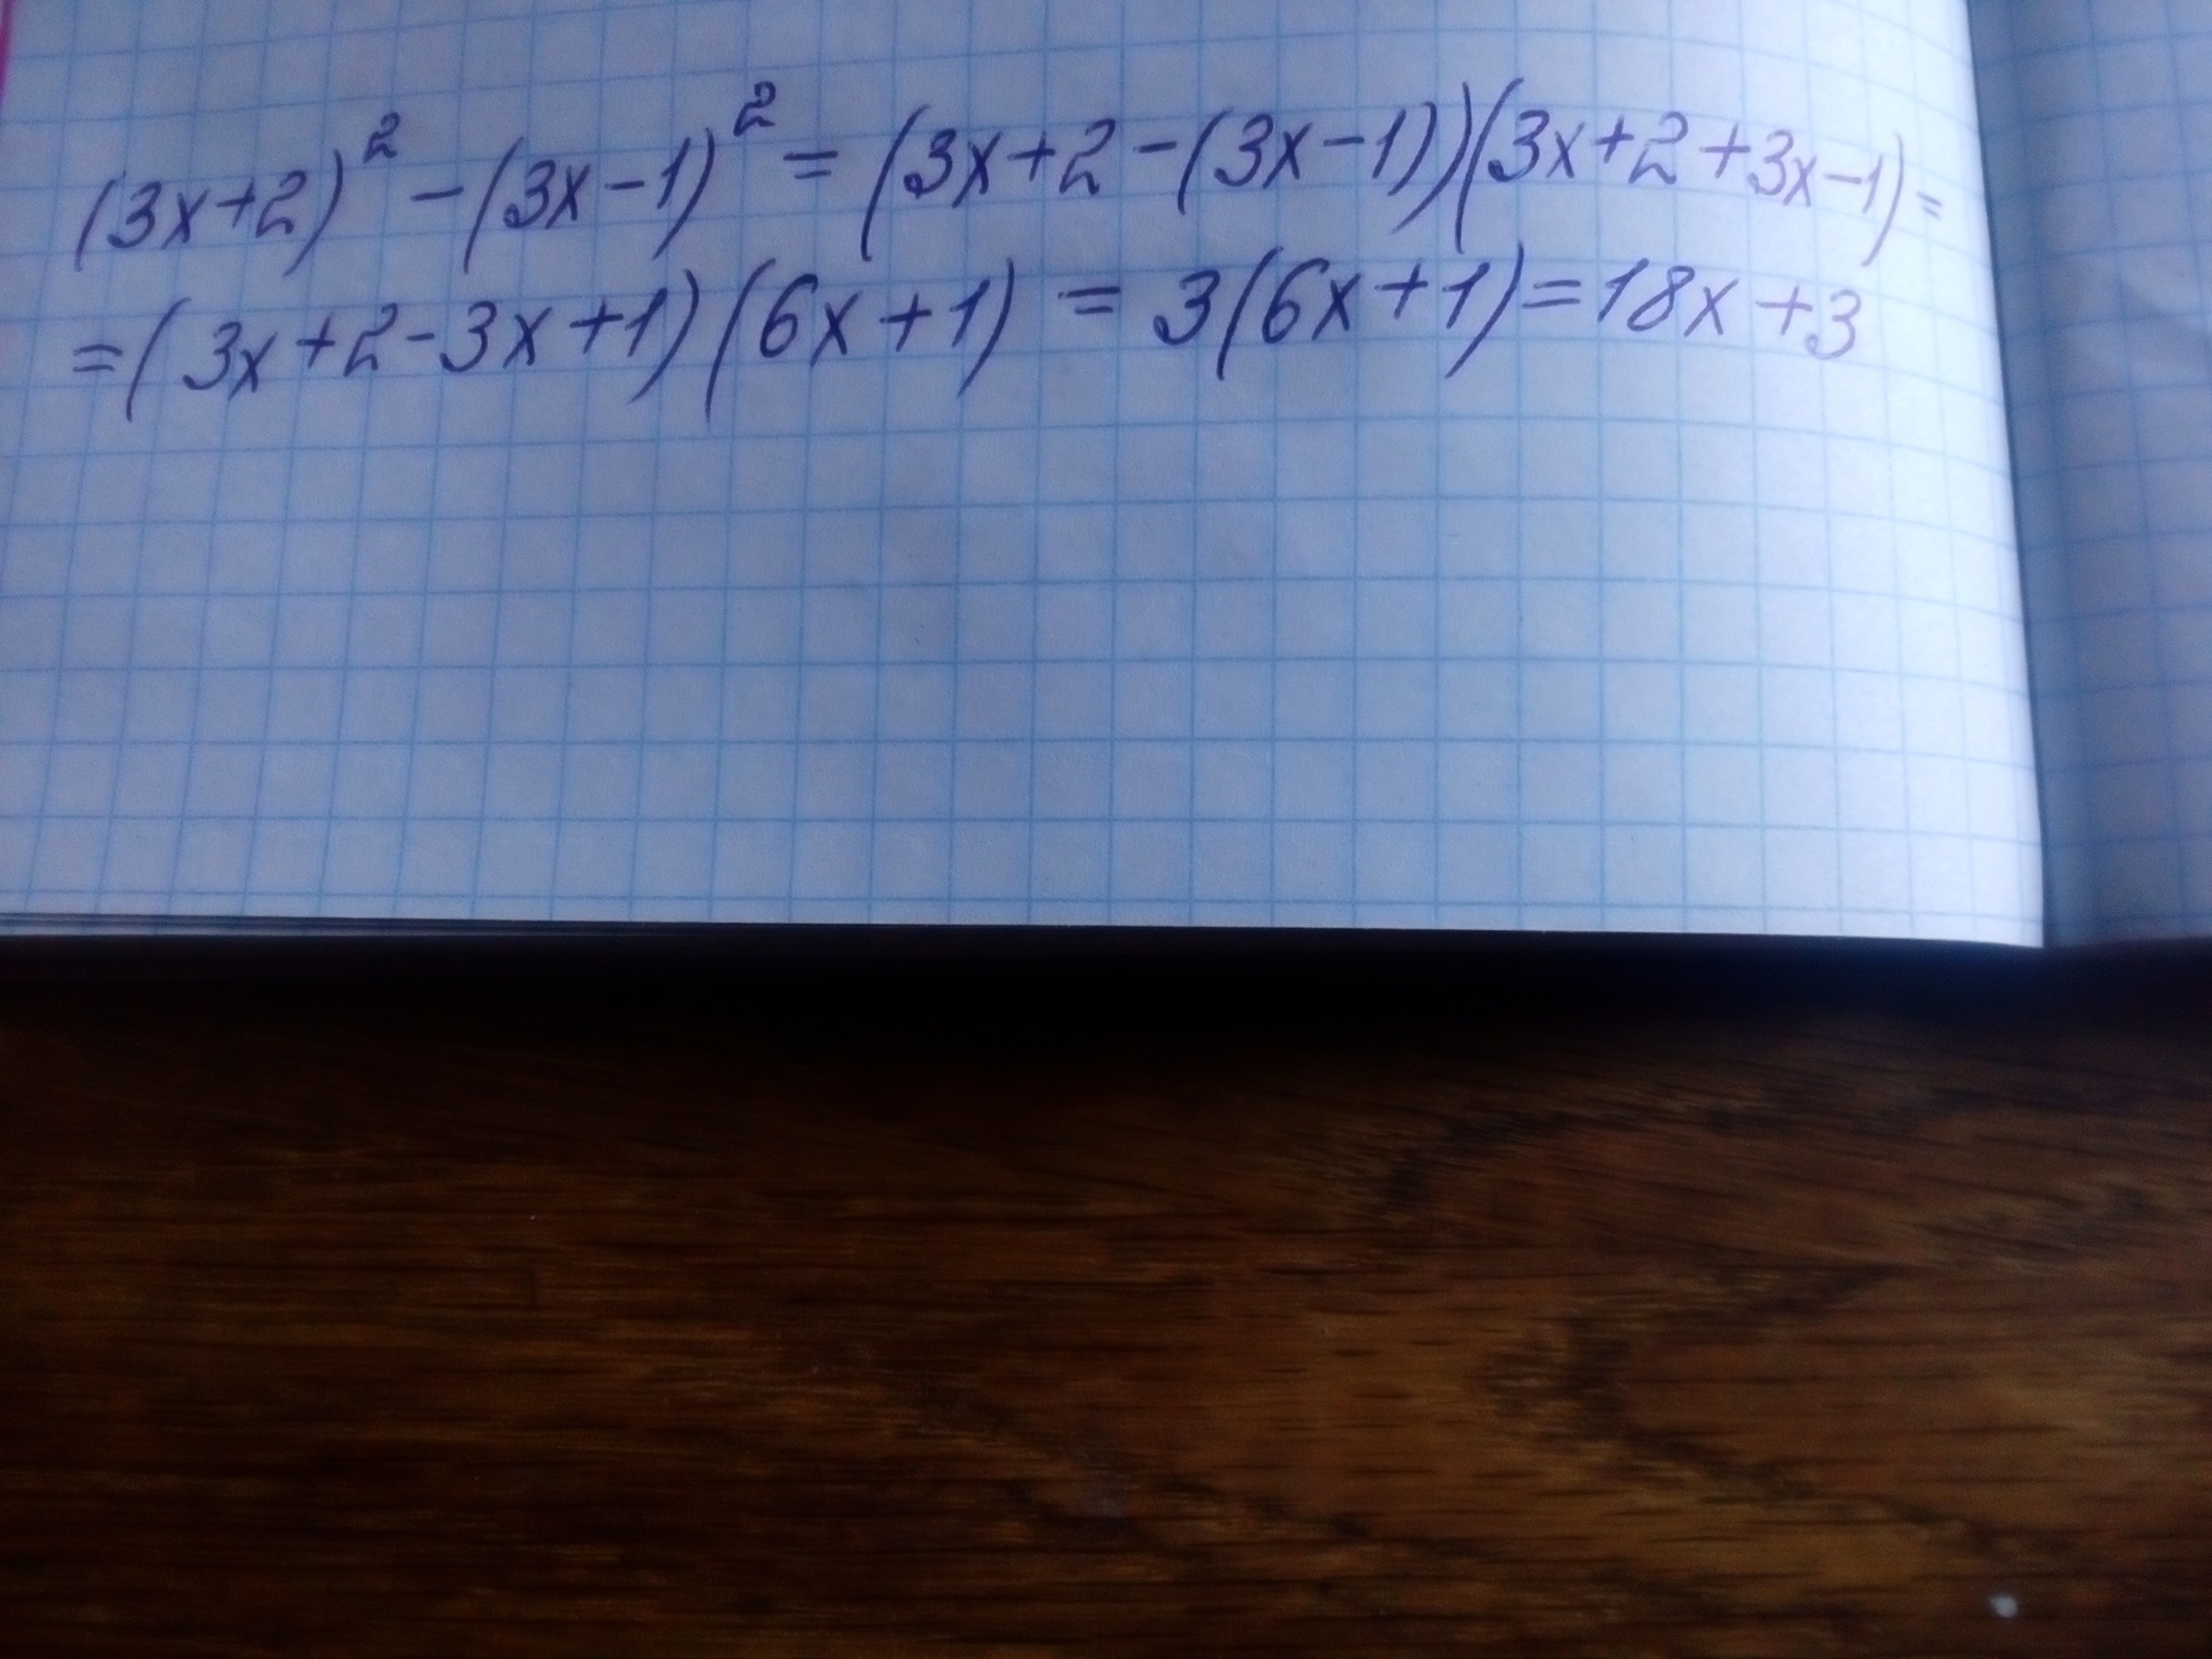 (3x+2)² - (3x-1)² = (3x+2-(3x-1))(3x+2+3x-1) =
= (3x+2-3x+1)(6x+1) = 3(6x+1) = 18x+3